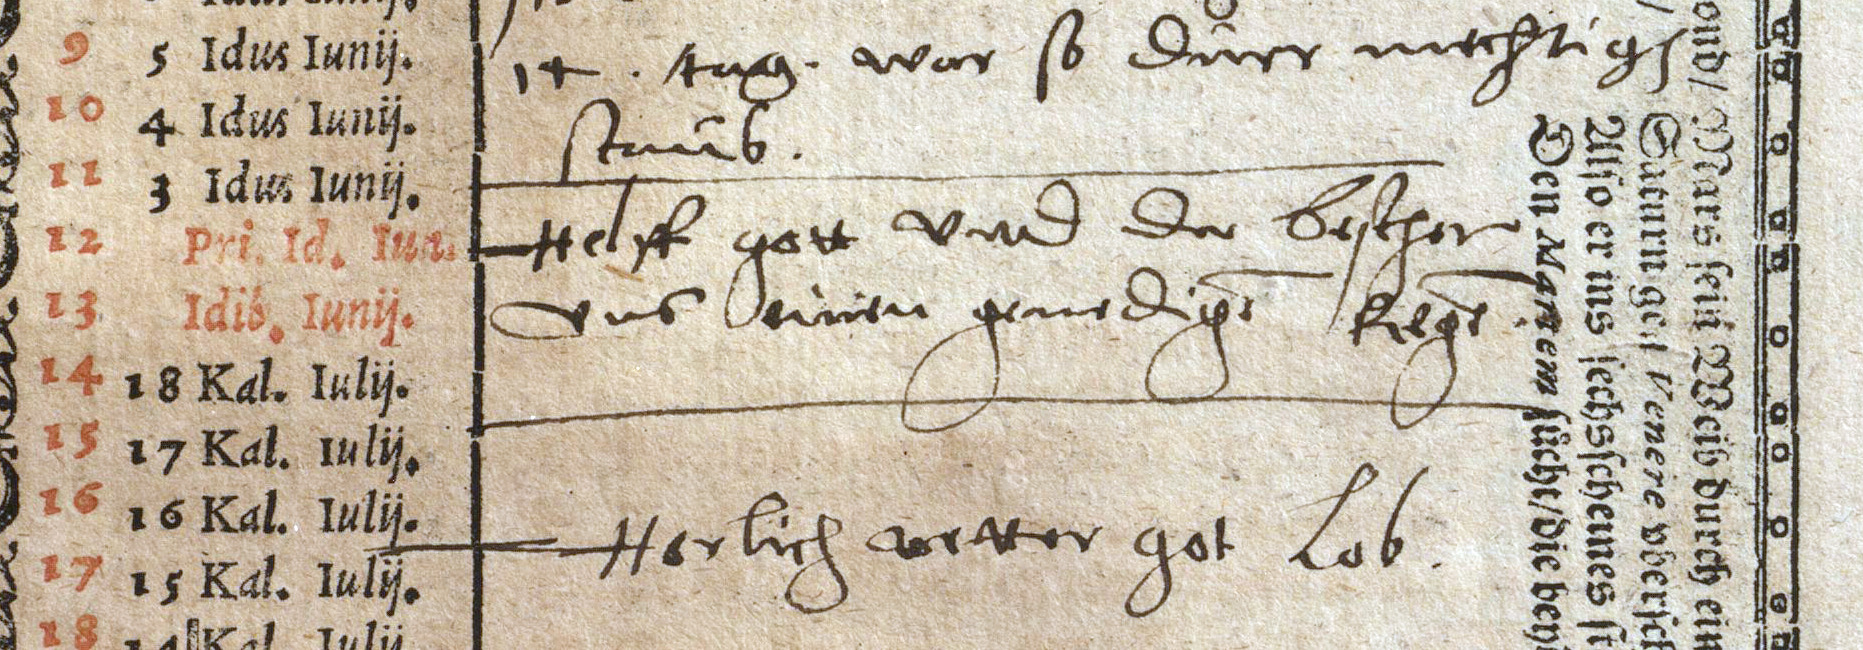 9 5 Idus Iunij.
10 4 Idus Iunij.
11 3 Idus Iunij.
12 Pri. Id. Iun.
13 Idib. Iunij.
14 18 Kal. Iulij.
15 17 Kal. Iulij.
16 16 Kal. Iulij.
17 15 Kal. Iulij.
18 14 Kal. Iulij.
14. tag. war so dürr mechtigh
staub.
Helff gott vnd der bescher
vns einen genedigē Regē.
Herlich wetter got Lob.
ond/ Mars sein Weib durch ein
Saturnn geil Venere vbersch
Also er ins sechsscheines st
Den Martem sücht/die bey